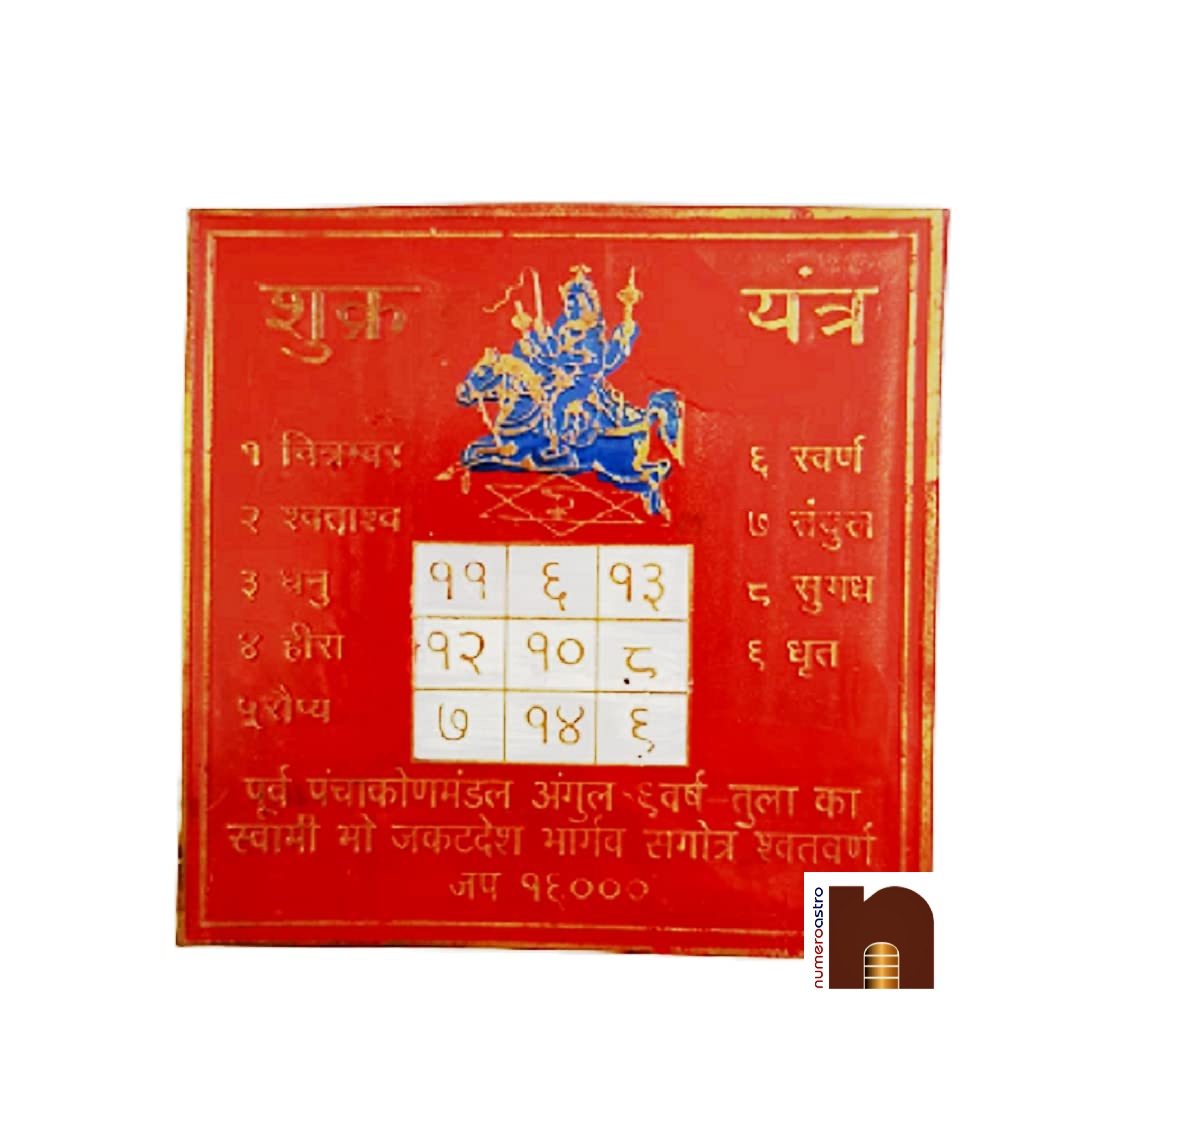 शुक्र यंत्र
१ चित्राम्वर
२ श्वताश्व
३ धनु
४ हीरा
५ रौप्य
६ स्वर्ण
७ तंयुत
८ सुगध
९ धृत
११ ६ १३
१२ १० ८
७ १४ ९
पूर्व पंचाकोणमंडल अंगुल ९ वर्ष तुला का
स्वामी भो जकटदेश भार्गव सगोत्र श्वतवर्ण
जप १६०००
numeroastro
n